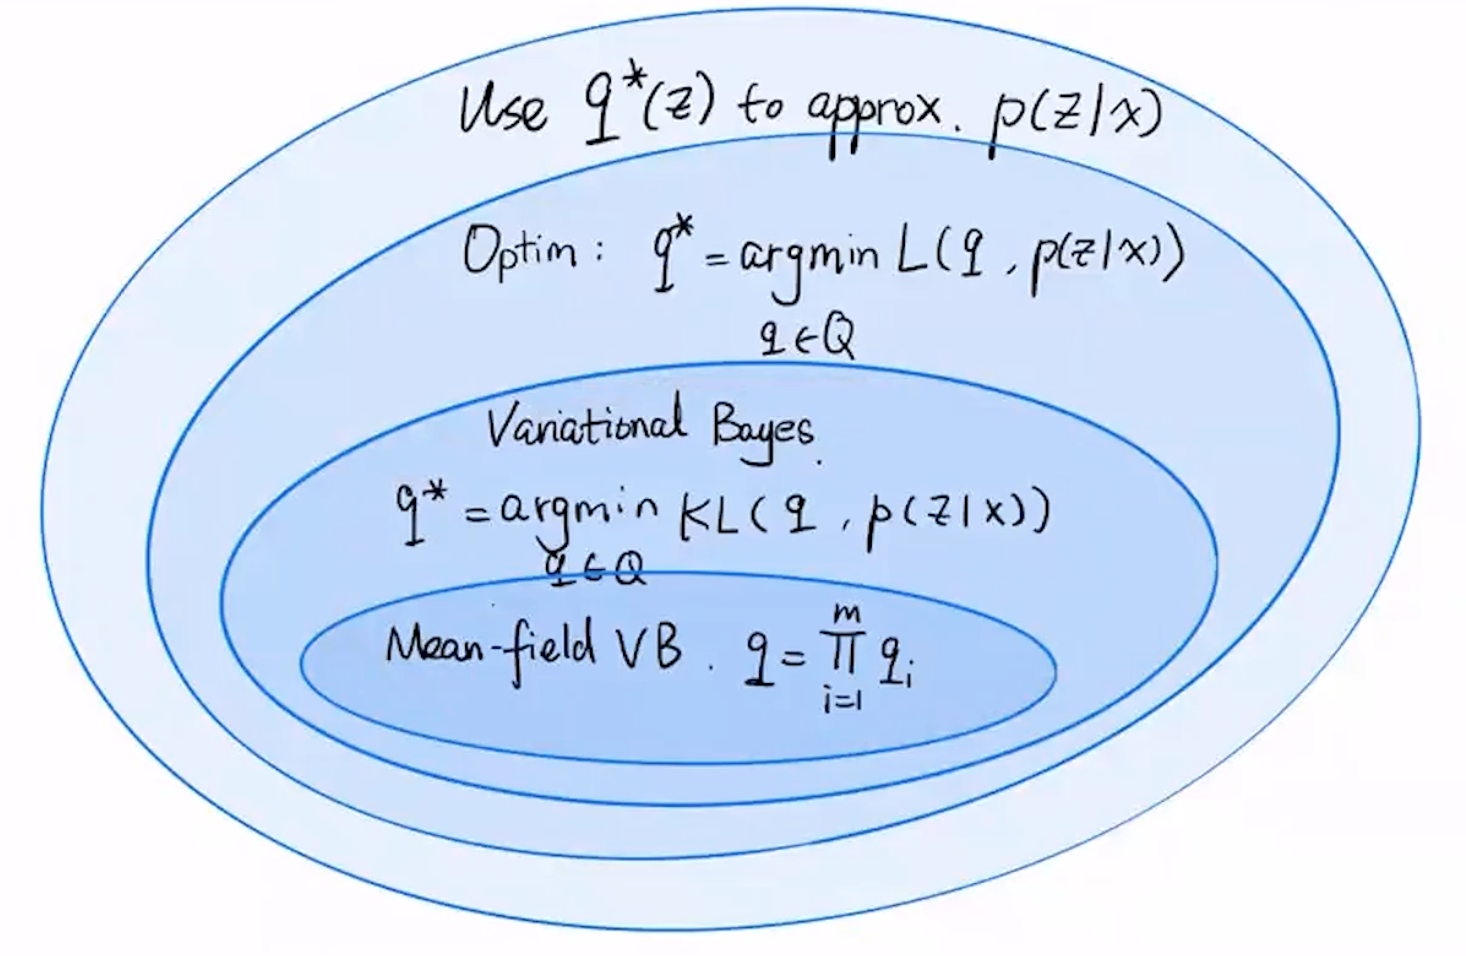 Use q*(z) to approx. p(z|x)
Optim: q* = argmin L(q, p(z|x))
q∈Q
Variational Bayes.
q* = argmin KL(q, p(z|x))
q∈Q
m
Mean-field VB. q = ∏ qᵢ
i=1